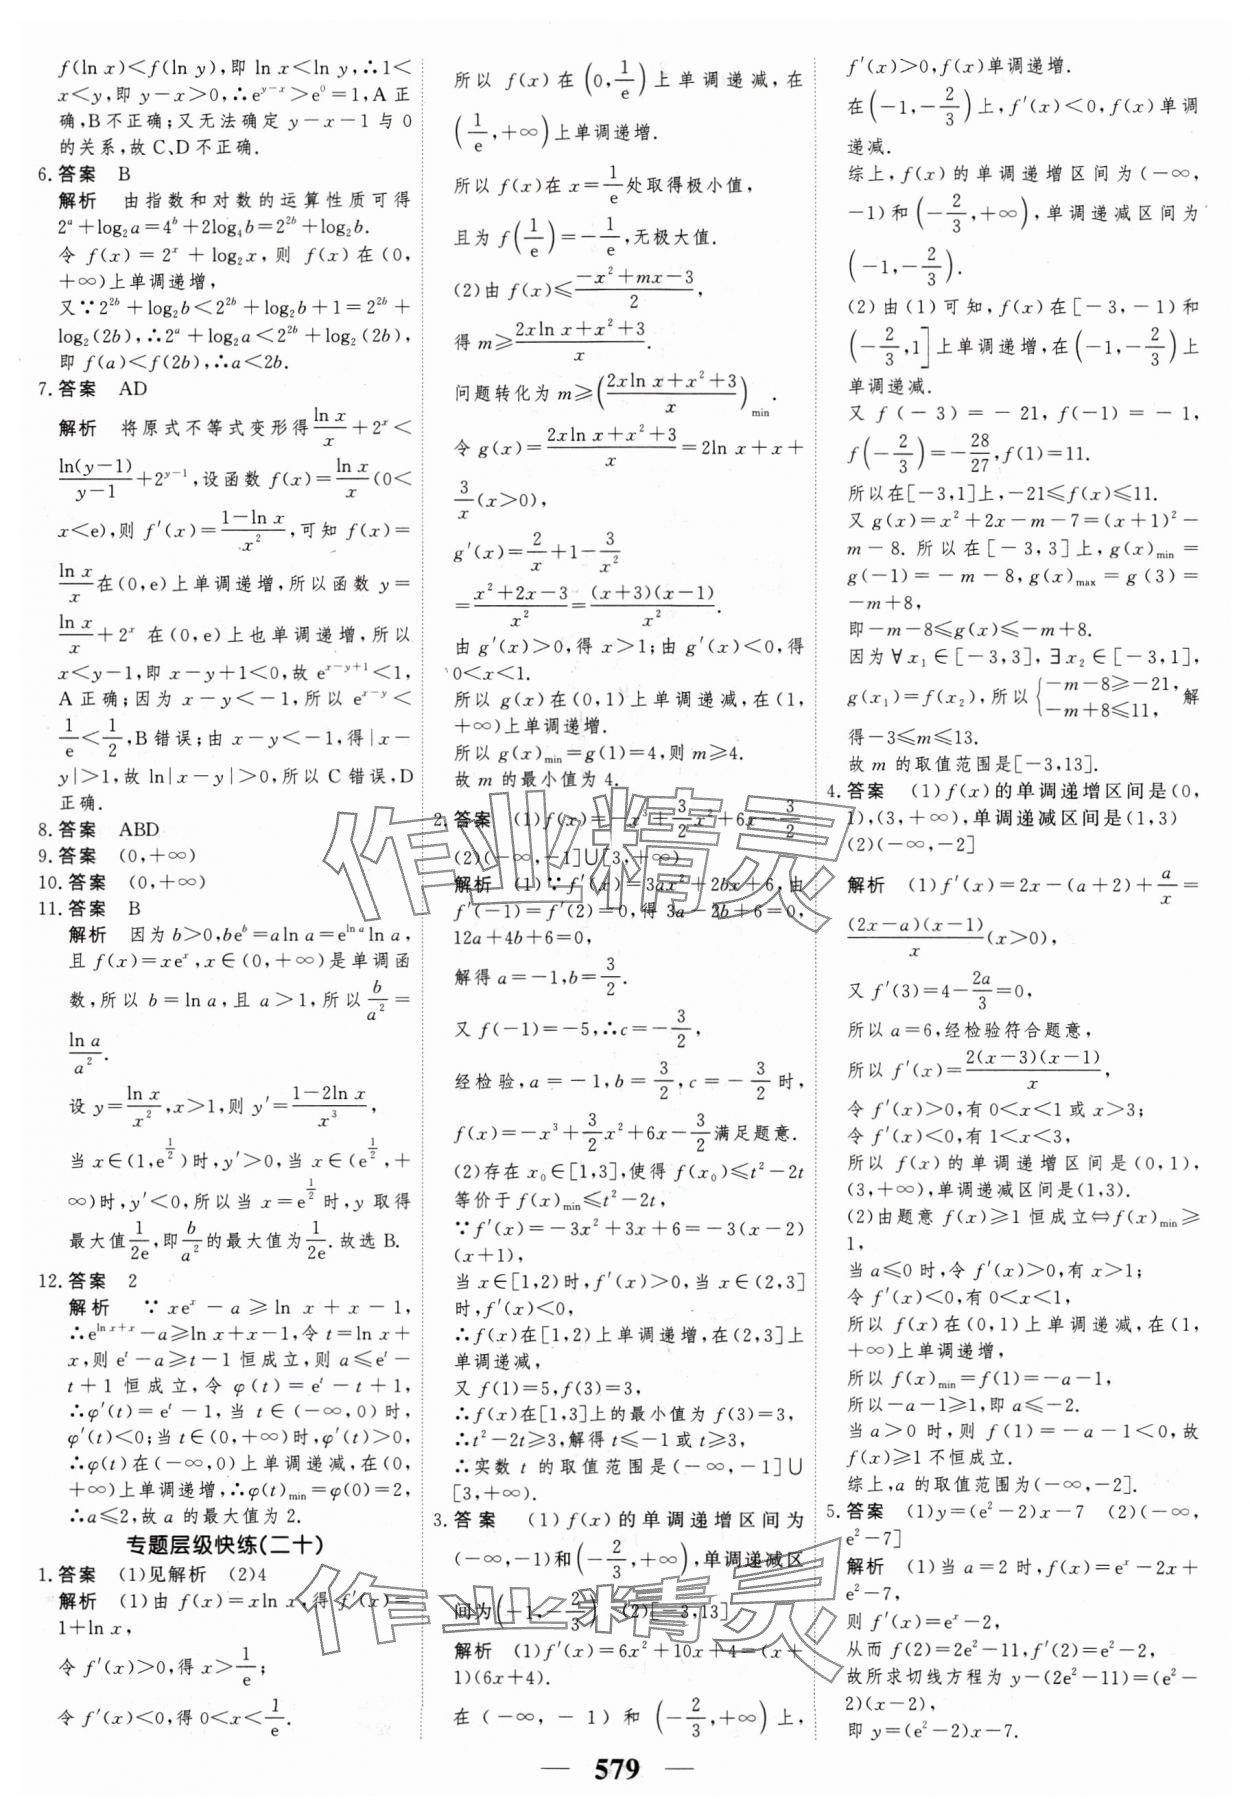 f(ln x)<f(ln y),即 ln x<ln y,∴1<
x<y,即 y-x>0,∴e^{y-x}>e^0=1,A 正
确,B不正确;又无法确定 y-x-1 与 0
的关系,故 C、D 不正确.
6.答案 B
解析 由指数和对数的运算性质可得
2^a+log_2a=4^b+2log_4b=2^{2b}+log_2b.
令 f(x)=2^x+log_2x,则 f(x)在(0,
+∞)上单调递增,
又∵2^{2b}+log_2b<2^{2b}+log_2b+1=2^{2b}+
log_2(2b),∴2^a+log_2a<2^{2b}+log_2(2b),
即 f(a)<f(2b),∴a<2b.
7.答案 AD
解析 将原式不等式变形得\frac{ln x}{x}+2^x<
\frac{ln(y-1)}{y-1}+2^{y-1},设函数 f(x)=\frac{ln x}{x}(0<
x<e),则 f'(x)=\frac{1-ln x}{x^2},可知 f(x)=
\frac{ln x}{x}在(0,e)上单调递增,所以函数 y=
\frac{ln x}{x}+2^x 在(0,e)上也单调递增,所以
x<y-1,即 x-y+1<0,故 e^{x-y+1}<1,
A 正确;因为 x-y<-1,所以 e^{x-y}<
\frac{1}{e}<\frac{1}{2},B 错误;由 x-y<-1,得|x-
y|>1,故 ln|x-y|>0,所以 C 错误,D
正确.
8.答案 ABD
9.答案 (0,+∞)
10.答案 (0,+∞)
11.答案 B
解析 因为 b>0,be^b=aln a=e^{ln a}ln a,
且 f(x)=xe^x,x∈(0,+∞)是单调函
数,所以 b=ln a,且 a>1,所以\frac{b}{a^2}=
\frac{ln a}{a^2}.
设 y=\frac{ln x}{x^2},x>1,则 y'=\frac{1-2ln x}{x^3},
当 x∈(1,e^{\frac{1}{2}})时,y'>0,当 x∈(e^{\frac{1}{2}},+
∞)时,y'<0,所以当 x=e^{\frac{1}{2}}时,y 取得
最大值\frac{1}{2e},即\frac{b}{a^2}的最大值为\frac{1}{2e}.故选 B.
12.答案 2
解析 ∵xe^x-a≥ln x+x-1,
∴e^{ln x+x}-a≥ln x+x-1,令 t=ln x+
x,则 e^t-a≥t-1 恒成立,则 a≤e^t-
t+1 恒成立,令 φ(t)=e^t-t+1,
∴φ'(t)=e^t-1,当 t∈(-∞,0)时,
φ'(t)<0;当 t∈(0,+∞)时,φ'(t)>0,
∴φ(t)在(-∞,0)上单调递减,在(0,
+∞)上单调递增,∴φ(t)_{min}=φ(0)=2,
∴a≤2,故 a 的最大值为 2.
专题层级快练(二十)
1.答案 (1)见解析 (2)4
解析 (1)由 f(x)=xln x,得 f'(x)=
1+ln x,
令 f'(x)>0,得 x>\frac{1}{e};
令 f'(x)<0,得 0<x<\frac{1}{e}.
所以 f(x)在(0,\frac{1}{e})上单调递减,在
(\frac{1}{e},+∞)上单调递增.
所以 f(x)在 x=\frac{1}{e}处取得极小值,
且为 f(\frac{1}{e})=-\frac{1}{e},无极大值.
(2)由 f(x)≤\frac{-x^2+mx-3}{2},
得 m≥\frac{2xln x+x^2+3}{x}.
问题转化为 m≥(\frac{2xln x+x^2+3}{x})_{min}.
令 g(x)=\frac{2xln x+x^2+3}{x}=2ln x+x+
\frac{3}{x}(x>0),
g'(x)=\frac{2}{x}+1-\frac{3}{x^2}
=\frac{x^2+2x-3}{x^2}=\frac{(x+3)(x-1)}{x^2}.
由 g'(x)>0,得 x>1;由 g'(x)<0,得
0<x<1.
所以 g(x)在(0,1)上单调递减,在(1,
+∞)上单调递增.
所以 g(x)_{min}=g(1)=4,则 m≥4.
故 m 的最小值为 4.
2.答案 (1)f(x)=-x^3+\frac{3}{2}x^2+6x-\frac{3}{2}
(2)(-∞,-1]∪[3,+∞)
解析 (1)∵f'(x)=3ax^2+2bx+6,由
f'(-1)=f'(2)=0,得 3a-2b+6=0,
12a+4b+6=0,
解得 a=-1,b=\frac{3}{2}.
又 f(-1)=-5,∴c=-\frac{3}{2},
经检验,a=-1,b=\frac{3}{2},c=-\frac{3}{2}时,
f(x)=-x^3+\frac{3}{2}x^2+6x-\frac{3}{2}满足题意.
(2)存在 x_0∈[1,3],使得 f(x_0)≤t^2-2t
等价于 f(x)_{min}≤t^2-2t,
∵f'(x)=-3x^2+3x+6=-3(x-2)
(x+1),
当 x∈[1,2)时,f'(x)>0,当 x∈(2,3]
时,f'(x)<0,
∴f(x)在[1,2)上单调递增,在(2,3]上
单调递减,
又 f(1)=5,f(3)=3,
∴f(x)在[1,3]上的最小值为 f(3)=3,
∴t^2-2t≥3,解得 t≤-1 或 t≥3,
∴实数 t 的取值范围是(-∞,-1]∪
[3,+∞).
3.答案 (1)f(x)的单调递增区间为
(-∞,-1)和(-\frac{2}{3},+∞),单调递减区
间为(-1,-\frac{2}{3}) (2)[-3,13]
解析 (1)f'(x)=6x^2+10x+4=(x+
1)(6x+4).
在(-∞,-1)和(-\frac{2}{3},+∞)上,
f'(x)>0,f(x)单调递增.
在(-1,-\frac{2}{3})上,f'(x)<0,f(x)单调
递减.
综上,f(x)的单调递增区间为(-∞,
-1)和(-\frac{2}{3},+∞),单调递减区间为
(-1,-\frac{2}{3}).
(2)由(1)可知,f(x)在[-3,-1)和
(-\frac{2}{3},1]上单调递增,在(-1,-\frac{2}{3})上
单调递减.
又 f(-3)=-21,f(-1)=-1,
f(-\frac{2}{3})=-\frac{28}{27},f(1)=11.
所以在[-3,1]上,-21≤f(x)≤11.
又 g(x)=x^2+2x-m-7=(x+1)^2-
m-8.所以在[-3,3]上,g(x)_{min}=
g(-1)=-m-8,g(x)_{max}=g(3)=
-m+8,
即-m-8≤g(x)≤-m+8.
因为∀x_1∈[-3,3],∃x_2∈[-3,1],
g(x_1)=f(x_2),所以{-m-8≥-21, -m+8≤11, 解
得-3≤m≤13.
故 m 的取值范围是[-3,13].
4.答案 (1)f(x)的单调递增区间是(0,
1),(3,+∞),单调递减区间是(1,3)
(2)(-∞,-2]
解析 (1)f'(x)=2x-(a+2)+\frac{a}{x}=
\frac{(2x-a)(x-1)}{x}(x>0),
又 f'(3)=4-\frac{2a}{3}=0,
所以 a=6,经检验符合题意,
所以 f'(x)=\frac{2(x-3)(x-1)}{x},
令 f'(x)>0,有 0<x<1 或 x>3;
令 f'(x)<0,有 1<x<3,
所以 f(x)的单调递增区间是(0,1),
(3,+∞),单调递减区间是(1,3).
(2)由题意 f(x)≥1 恒成立⇔f(x)_{min}≥
1,
当 a≤0 时,令 f'(x)>0,有 x>1;
令 f'(x)<0,有 0<x<1,
所以 f(x)在(0,1)上单调递减,在(1,
+∞)上单调递增,
所以 f(x)_{min}=f(1)=-a-1,
所以-a-1≥1,即 a≤-2.
当 a>0 时,则 f(1)=-a-1<0,故
f(x)≥1 不恒成立.
综上,a 的取值范围为(-∞,-2].
5.答案 (1)y=(e^2-2)x-7 (2)(-∞,
e^2-7]
解析 (1)当 a=2 时,f(x)=e^x-2x+
e^2-7,
则 f'(x)=e^x-2,
从而 f(2)=2e^2-11,f'(2)=e^2-2,
故所求切线方程为 y-(2e^2-11)=(e^2-
2)(x-2),
即 y=(e^2-2)x-7.
579
作业精灵
作业精灵